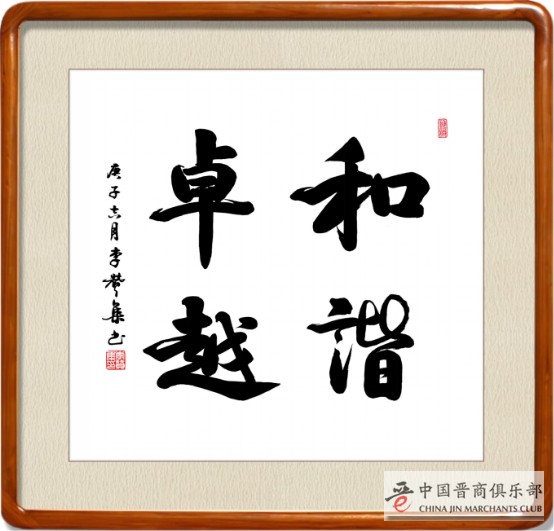 和諧
卓越
庚子六月李
集书
中国晋商俱乐部
CHINA JIN MARCHANTS CLUB